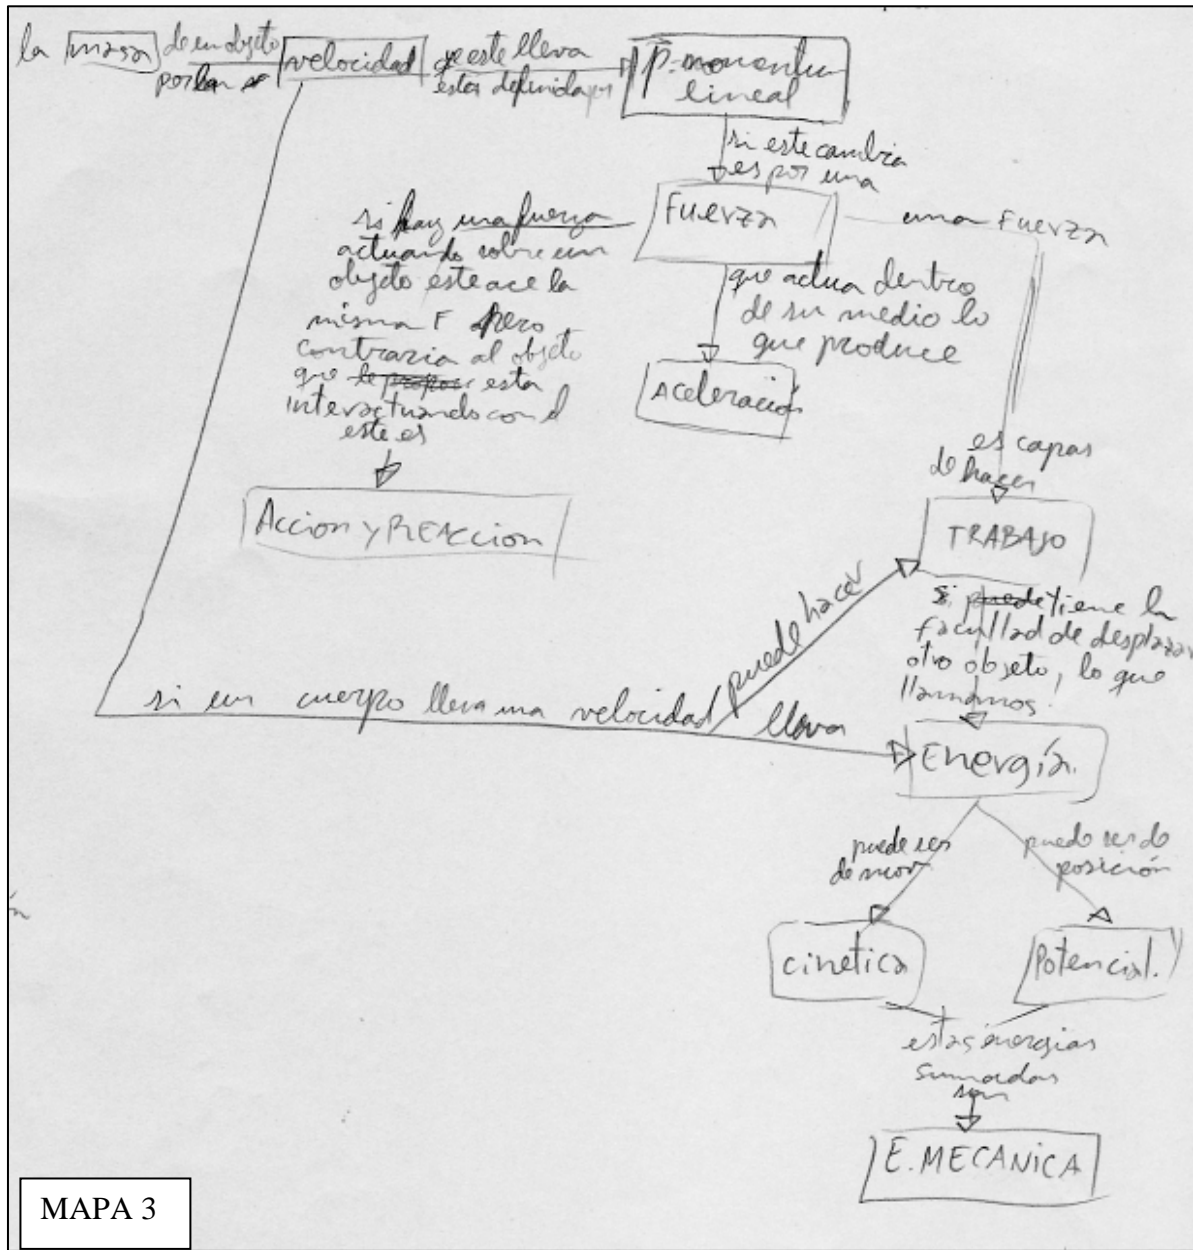 la masa de un objeto
por la
velocidad
que este lleva
esta definida por
p. momentum
lineal
si este cambia
es por una
Fuerza
una Fuerza
si hay una fuerza
actuando sobre un
objeto este ace la
misma F pero
contraria al objeto
que esta
interactuando con el
este es
Accion y REAccion
que actua dentro
de su medio lo
que produce
Aceleración
es capas
de hacer
TRABAJO
si tiene la
facultad de desplazar
otro objeto, lo que
llamamos!
si un cuerpo lleva una velocidad
puede hacer
lleva
Energía.
puede ser
de mov
puede ser de
posición
cinetica
Potencial.
estas energias
sumadas
son
E. MECANICA
MAPA 3